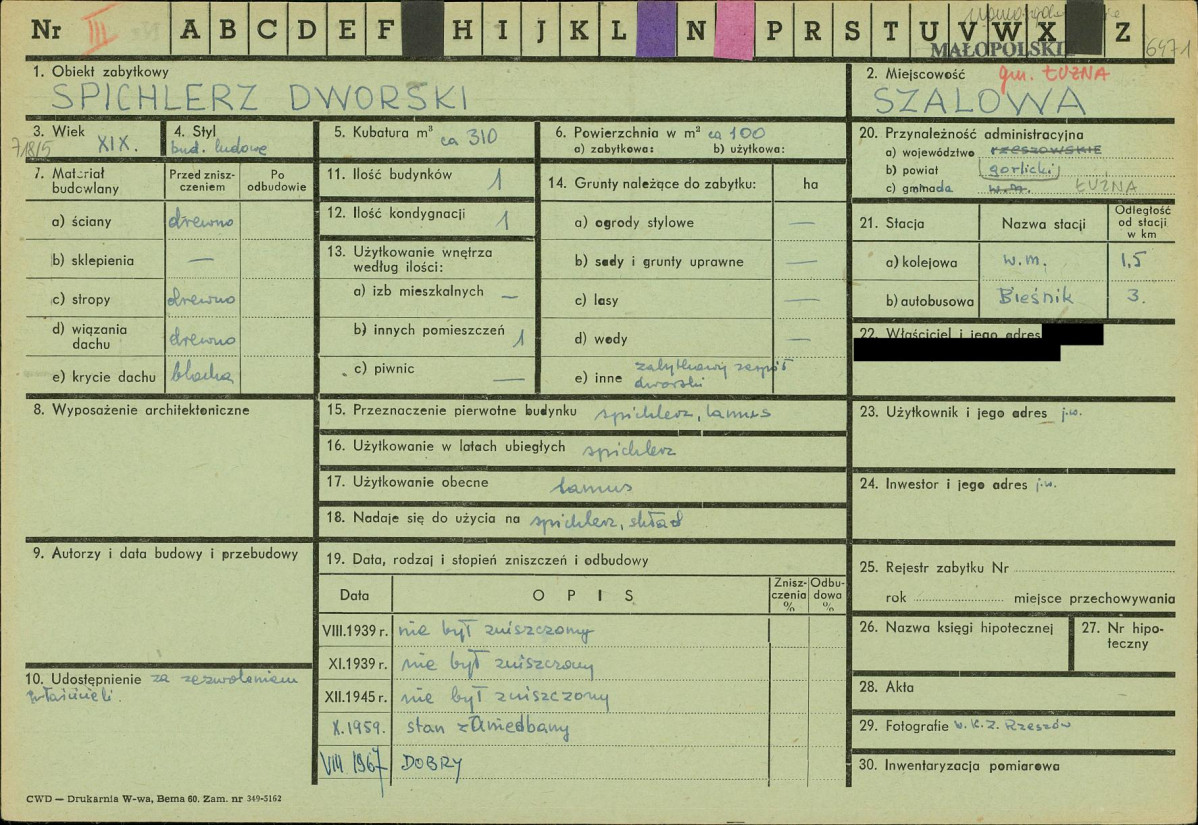 Nr III A B C D E F H I J K L N P R S T U V W X Z
MAŁOPOLSKIE
6471
1. Obiekt zabytkowy
SPICHLERZ DWORSKI
2. Miejscowość gm. ŁUŻNA
SZALOWA
3. Wiek XIX.
718/5
4. Styl
bud. ludowe
5. Kubatura m³ ca 310
6. Powierzchnia w m² ca 100
a) zabytkowa: b) użytkowa:
7. Materiał budowlany
Przed zniszczeniem
Po odbudowie
a) ściany drewno
b) sklepienia —
c) stropy drewno
d) wiązania dachu drewno
e) krycie dachu blacha
8. Wyposażenie architektoniczne
9. Autorzy i data budowy i przebudowy
10. Udostępnienie za zezwoleniem
właścicieli.
11. Ilość budynków 1
12. Ilość kondygnacji 1
13. Użytkowanie wnętrza
według ilości:
a) izb mieszkalnych —
b) innych pomieszczeń 1
c) piwnic —
14. Grunty należące do zabytku: ha
a) ogrody stylowe —
b) sady i grunty uprawne —
c) lasy —
d) wody —
e) inne zabytkowy zespół
dworski
15. Przeznaczenie pierwotne budynku spichlerz, lamus
16. Użytkowanie w latach ubiegłych spichlerz
17. Użytkowanie obecne lamus
18. Nadaje się do użycia na spichlerz, skład
19. Data, rodzaj i stopień zniszczeń i odbudowy
Data OPIS Zniszczenia % Odbudowa %
VIII.1939 r. nie był zniszczony
XI.1939 r. nie był zniszczony
XII.1945 r. nie był zniszczony
X.1959. stan zaniedbany
VIII 1967 DOBRY
20. Przynależność administracyjna
a) województwo rzeszowskie
b) powiat gorlicki
c) gmnada w.m. ŁUŻNA
21. Stacja Nazwa stacji Odległość od stacji w km
a) kolejowa w.m. 1,5
b) autobusowa Bieśnik 3.
22. Właściciel i jego adres
23. Użytkownik i jego adres j.w.
24. Inwestor i jego adres j.w.
25. Rejestr zabytku Nr
rok miejsce przechowywania
26. Nazwa księgi hipotecznej
27. Nr hipoteczny
28. Akta
29. Fotografie W.K.Z. Rzeszów
30. Inwentaryzacja pomiarowa
CWD — Drukarnia W-wa, Bema 60. Zam. nr 349-5162